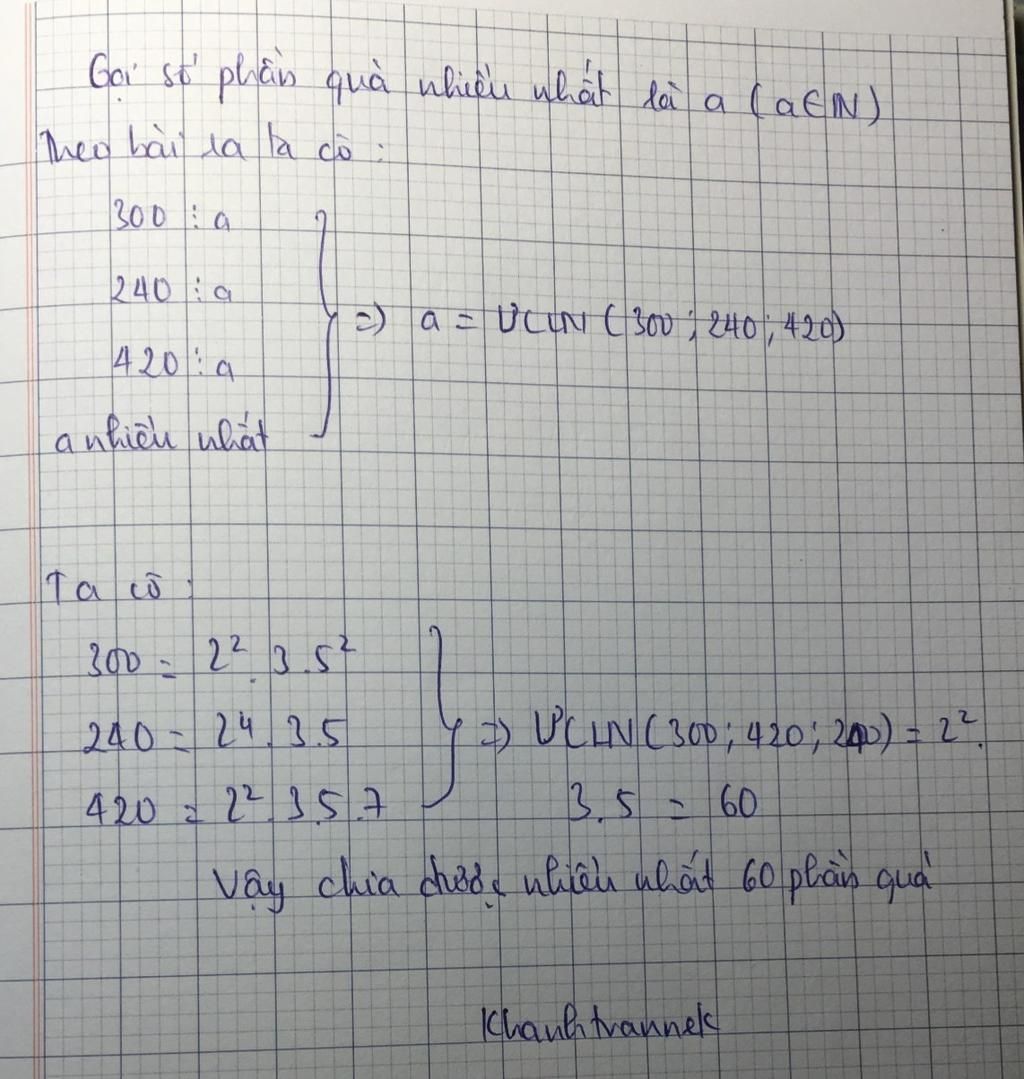 Gọi số phần quà nhiều nhất là a (a∈N)
Theo bài ra ta có :
300 ⋮ a
240 ⋮ a
420 ⋮ a
a nhiều nhất
=> a = ƯCLN (300 ; 240 ; 420)
Ta có :
300 = 2² . 3 . 5²
240 = 2⁴ . 3 . 5
420 = 2² . 3 . 5 . 7
=> ƯCLN (300 ; 420 ; 240) = 2² .
3 . 5 = 60
Vậy chia được nhiều nhất 60 phần quà
Khanhtrannek